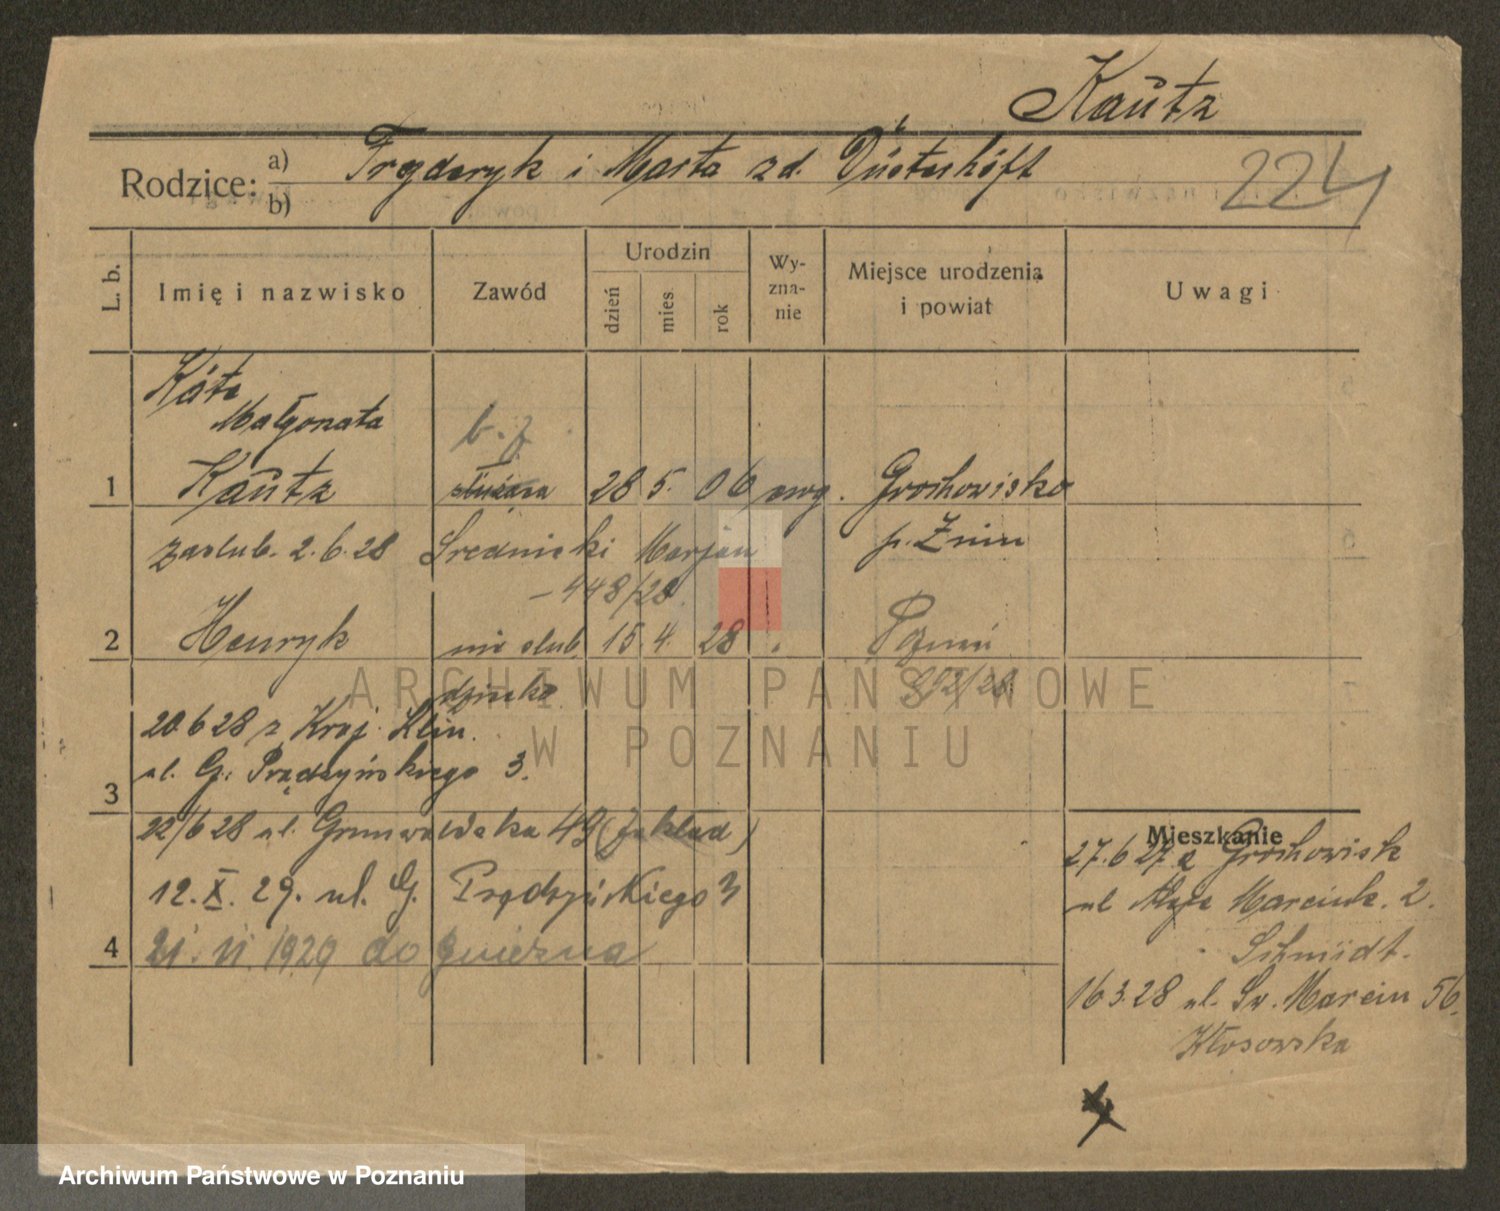 Kautz
Rodzice: a) Fryderyk i Marta zd.
b)
224
L. b.
Imię i nazwisko
Zawód
Urodzin
dzień
mies
rok
Wy-
zna-
nie
Miejsce urodzenia
i powiat
Uwagi
Käte
Małgorzata
b. z
1 Kautz służąca 28 5. 06 ewg. Grochowiska
zaślub. 2.6.28 Średnicki Marjan p. Żnin
- 448/28
2 Henryk nie ślub. 15. 4. 28 " Poznań
dziecko 892/28
ARCHIWUM PAŃSTWOWE
W POZNANIU
20.6 28 z Kraj. Klin.
3 ul. G. Prądzyńskiego 3.
22/6 28 ul. Grunwaldzka 49 (Zakład)
12. X. 29. ul. G. Prądzyńskiego 3
4 21. VI. 1929 do Gniezna
Mieszkanie
27.6 27 z Grochowisk
ul Aleje Marcink. 2.
Schmidt.
16 3.28 ul. Św. Marcin 56.
Kłosowska
Archiwum Państwowe w Poznaniu